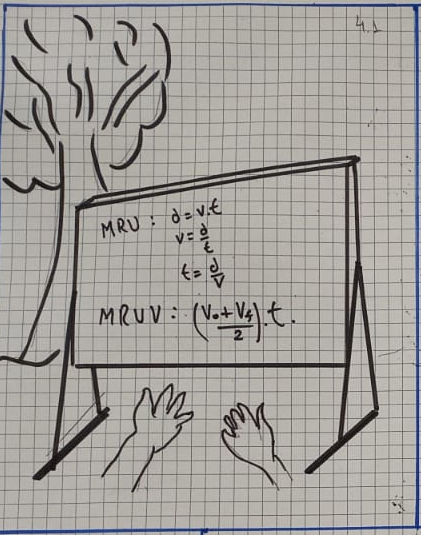 4.1
MRU: d = v.t
v = d/t
t = d/v
MRUV: (V₀ + V₄/2).t.